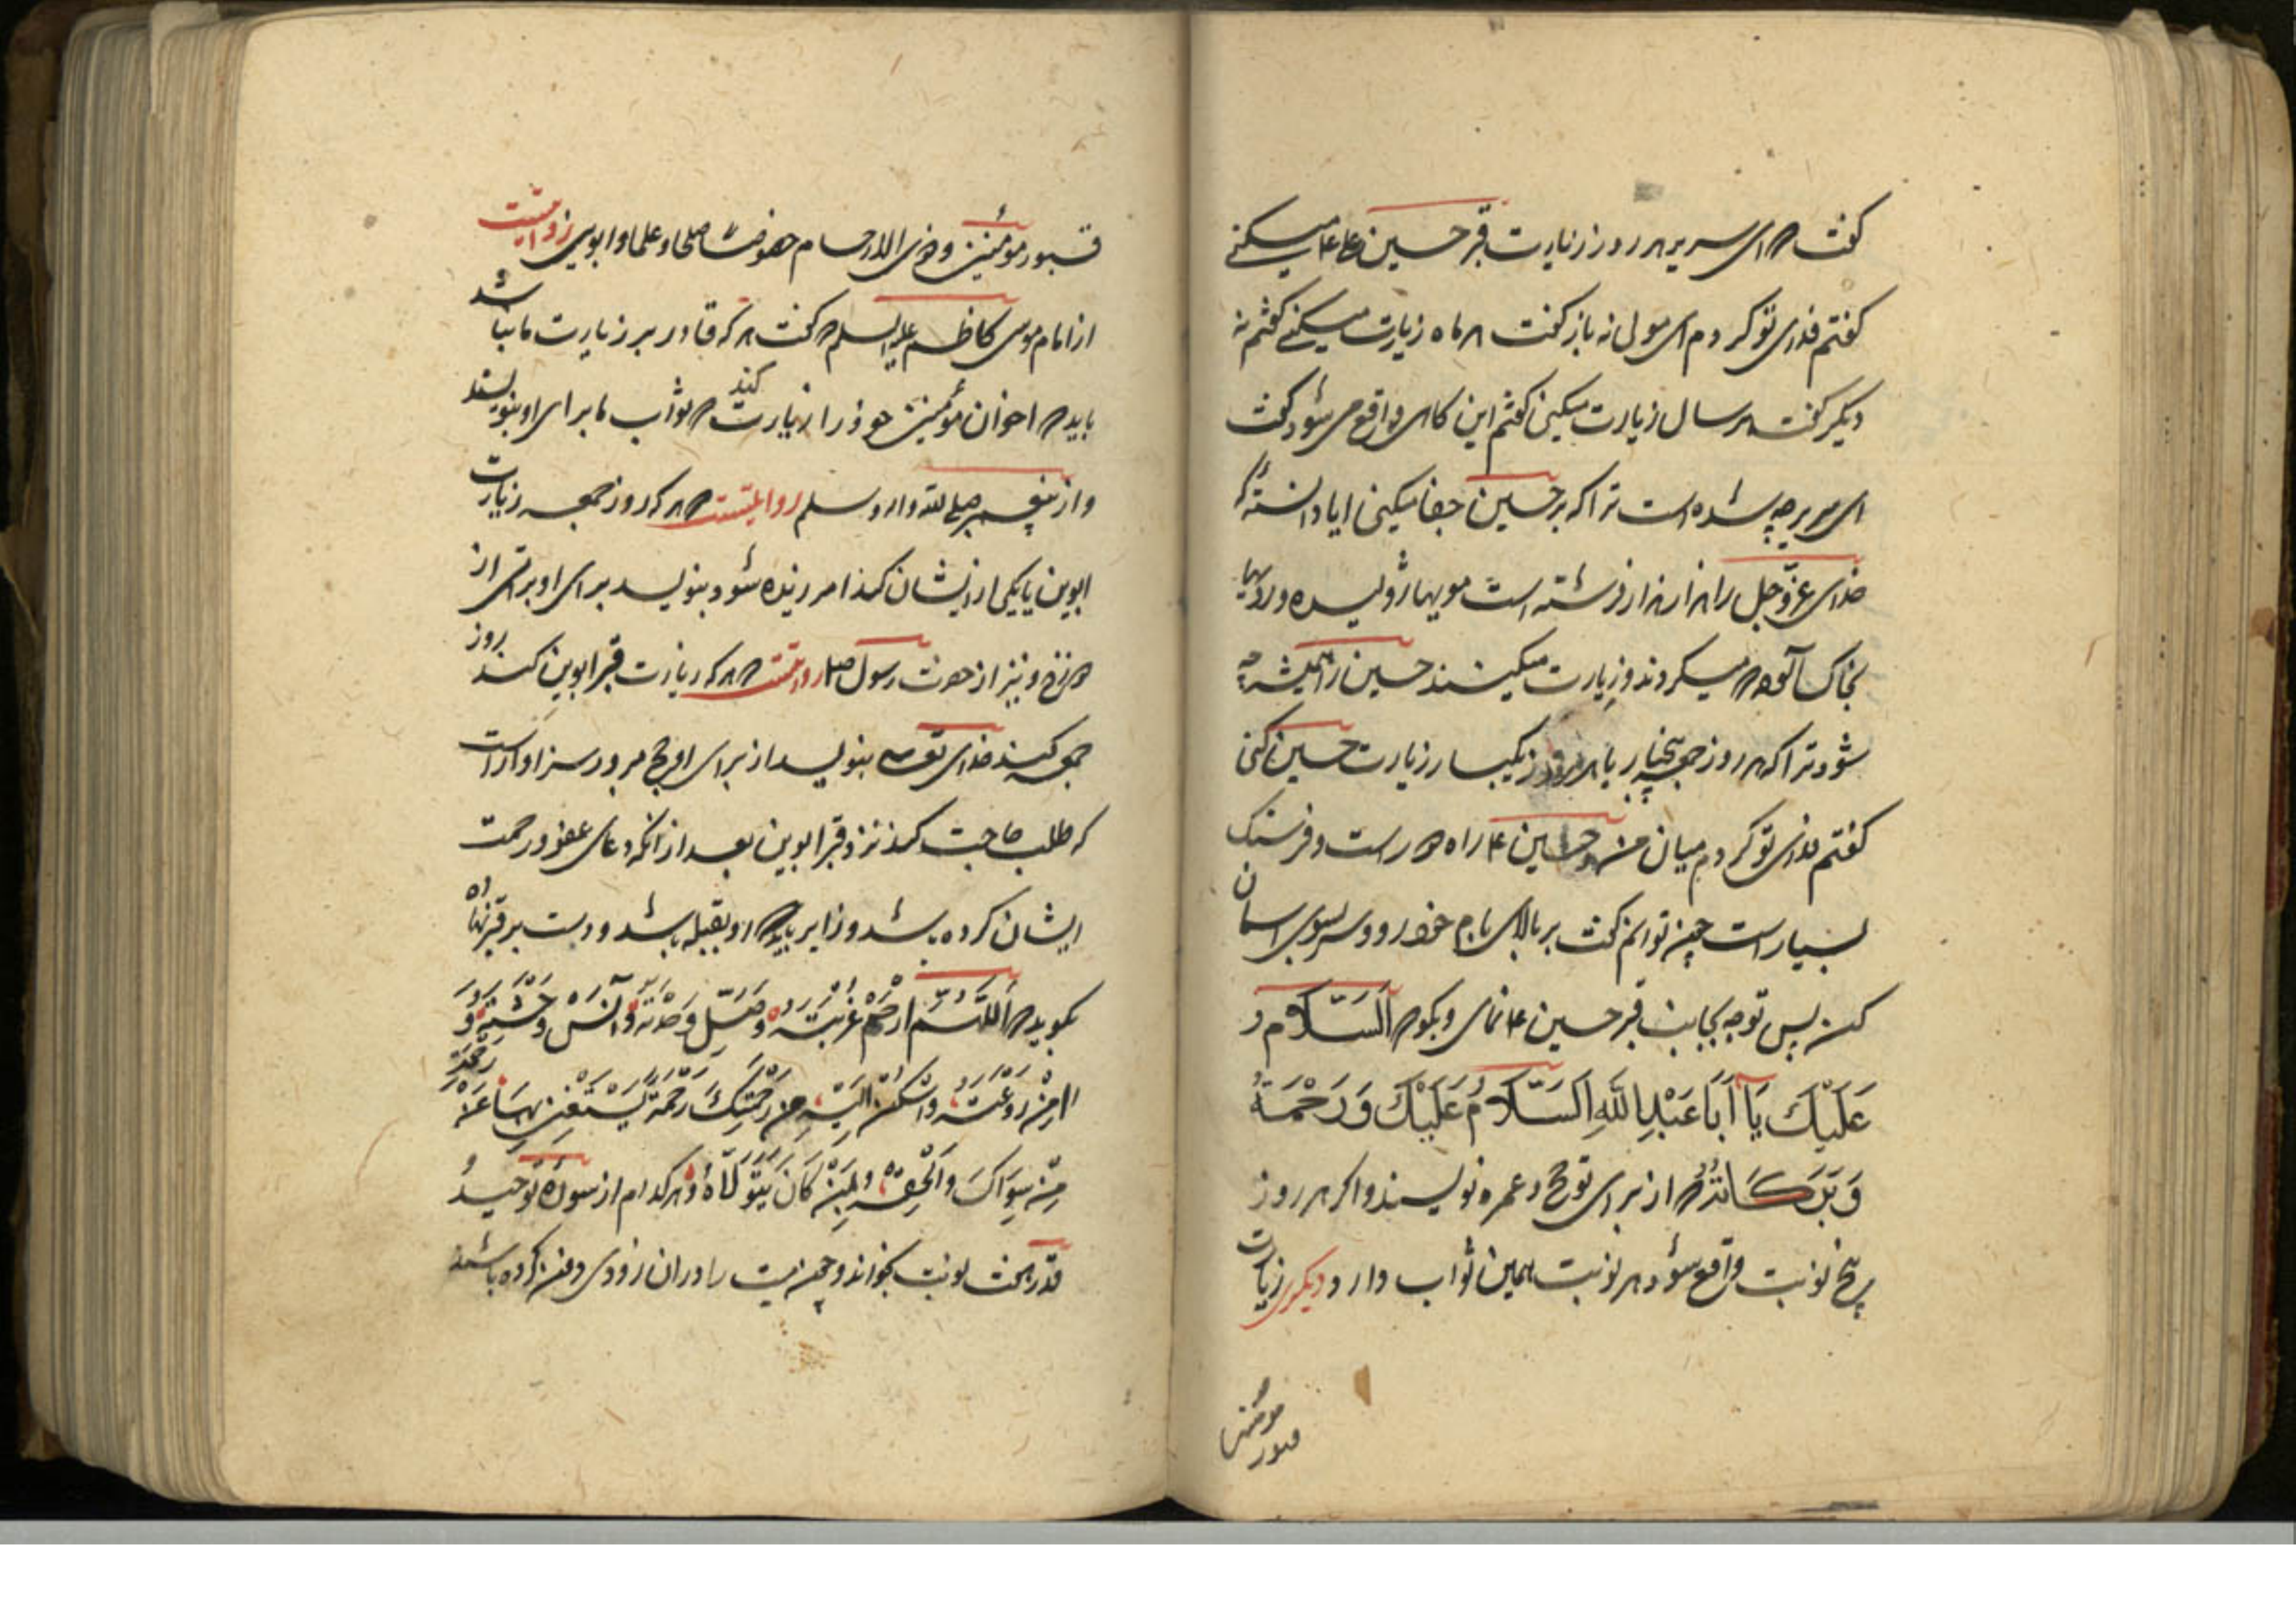 گفت که ای سریر هر روز زیارت قبر حسین ع میکنے
گفتم فدای تو کردم ای مولی نه باز گفت هر ماه زیارت میکنے گفتم نه
دیگر گفت هر سال زیارت میکنی گفتم این کاهی واقع می شود گفت
ای سریر چه شده است ترا که بر حسین جفا میکنی ایا دانسته که
خدای عزّوجل را هزار هزار فرشته است مویها ژولیده و رویها
بخاک آلوده میکردند و زیارت میکنند حسین را همیشه چه
شود ترا که هر روز جمعه پنجبار یا هر روز یکبار زیارت حسین کنی
گفتم فدای تو کردم میان من و حسین ع راه است و فرسنک
بسیار است چون توانم گفت بر بالای بام خود رو و سر بسوی اسمان
کن پس توجه بجانب قبر حسین ع نمای و بکو که اَلسَّلامُ
عَلَیْكَ یَا اَبَا عَبْدِ اللّٰهِ اَلسَّلَامُ عَلَیْكَ وَرَحْمَةُ
وَبَرَکَاتُهُ که از برای تو حج و عمره نویسند و اکر هر روز
پنج نوبت واقع شود هر نوبت همین ثواب دارد و دیکری زیارت
قبور مومنین
قبور مؤمنین و ذوی الارحام خصوصًا صلحا و علما و ابوین روایتست
از امام موسی کاظم علیه السلم که گفت هر که قادر بر زیارت ما نباشد
باید که اخوان مؤمنین خود را زیارت کند که ثواب ما برای او بنویسند
و از پیغمبر صلی الله و اله و سلم روایتست که هر که روز جمعه زیارت
ابوین یا یکی از ایشان کند امرزیده شود و بنویسد برای او براتی از
دوزخ و نیز از حضرت رسول صلعم روایتست که هر که زیارت قبر ابوین کند روز
جمعه کند خدای تعالی بنویسد از برای او حج مبرور سزاوار است
که طلب حاجت کند نزد قبر ابوین بعد از انکه دعای عفو و رحمت
ایشان کرده باشد و زایر باید که رو بقبله باشد و دست بر قبر نهاده
بکوید که اَللّٰهُمَّ ارْحَمْ غُرْبَتَهُ وَصِلْ وَحْدَتَهُ وَآنِسْ وَحْشَتَهُ وَ
اٰمِنْ رَوْعَتَهُ وَاَسْكِنْ اِلَیْهِ مِنْ رَحْمَتِكَ رَحْمَةً یَسْتَغْنِیْ بِهَا عَنْ رَحْمَةِ
مَنْ سِوَاكَ وَاَلْحِقْهُ بِمَنْ كَانَ یَتَوَلَّاهُ و هر کدام از سوره توحید
و قدر هفت نوبت بخواند و چون میت را در ان زودی دفن کرده باشند